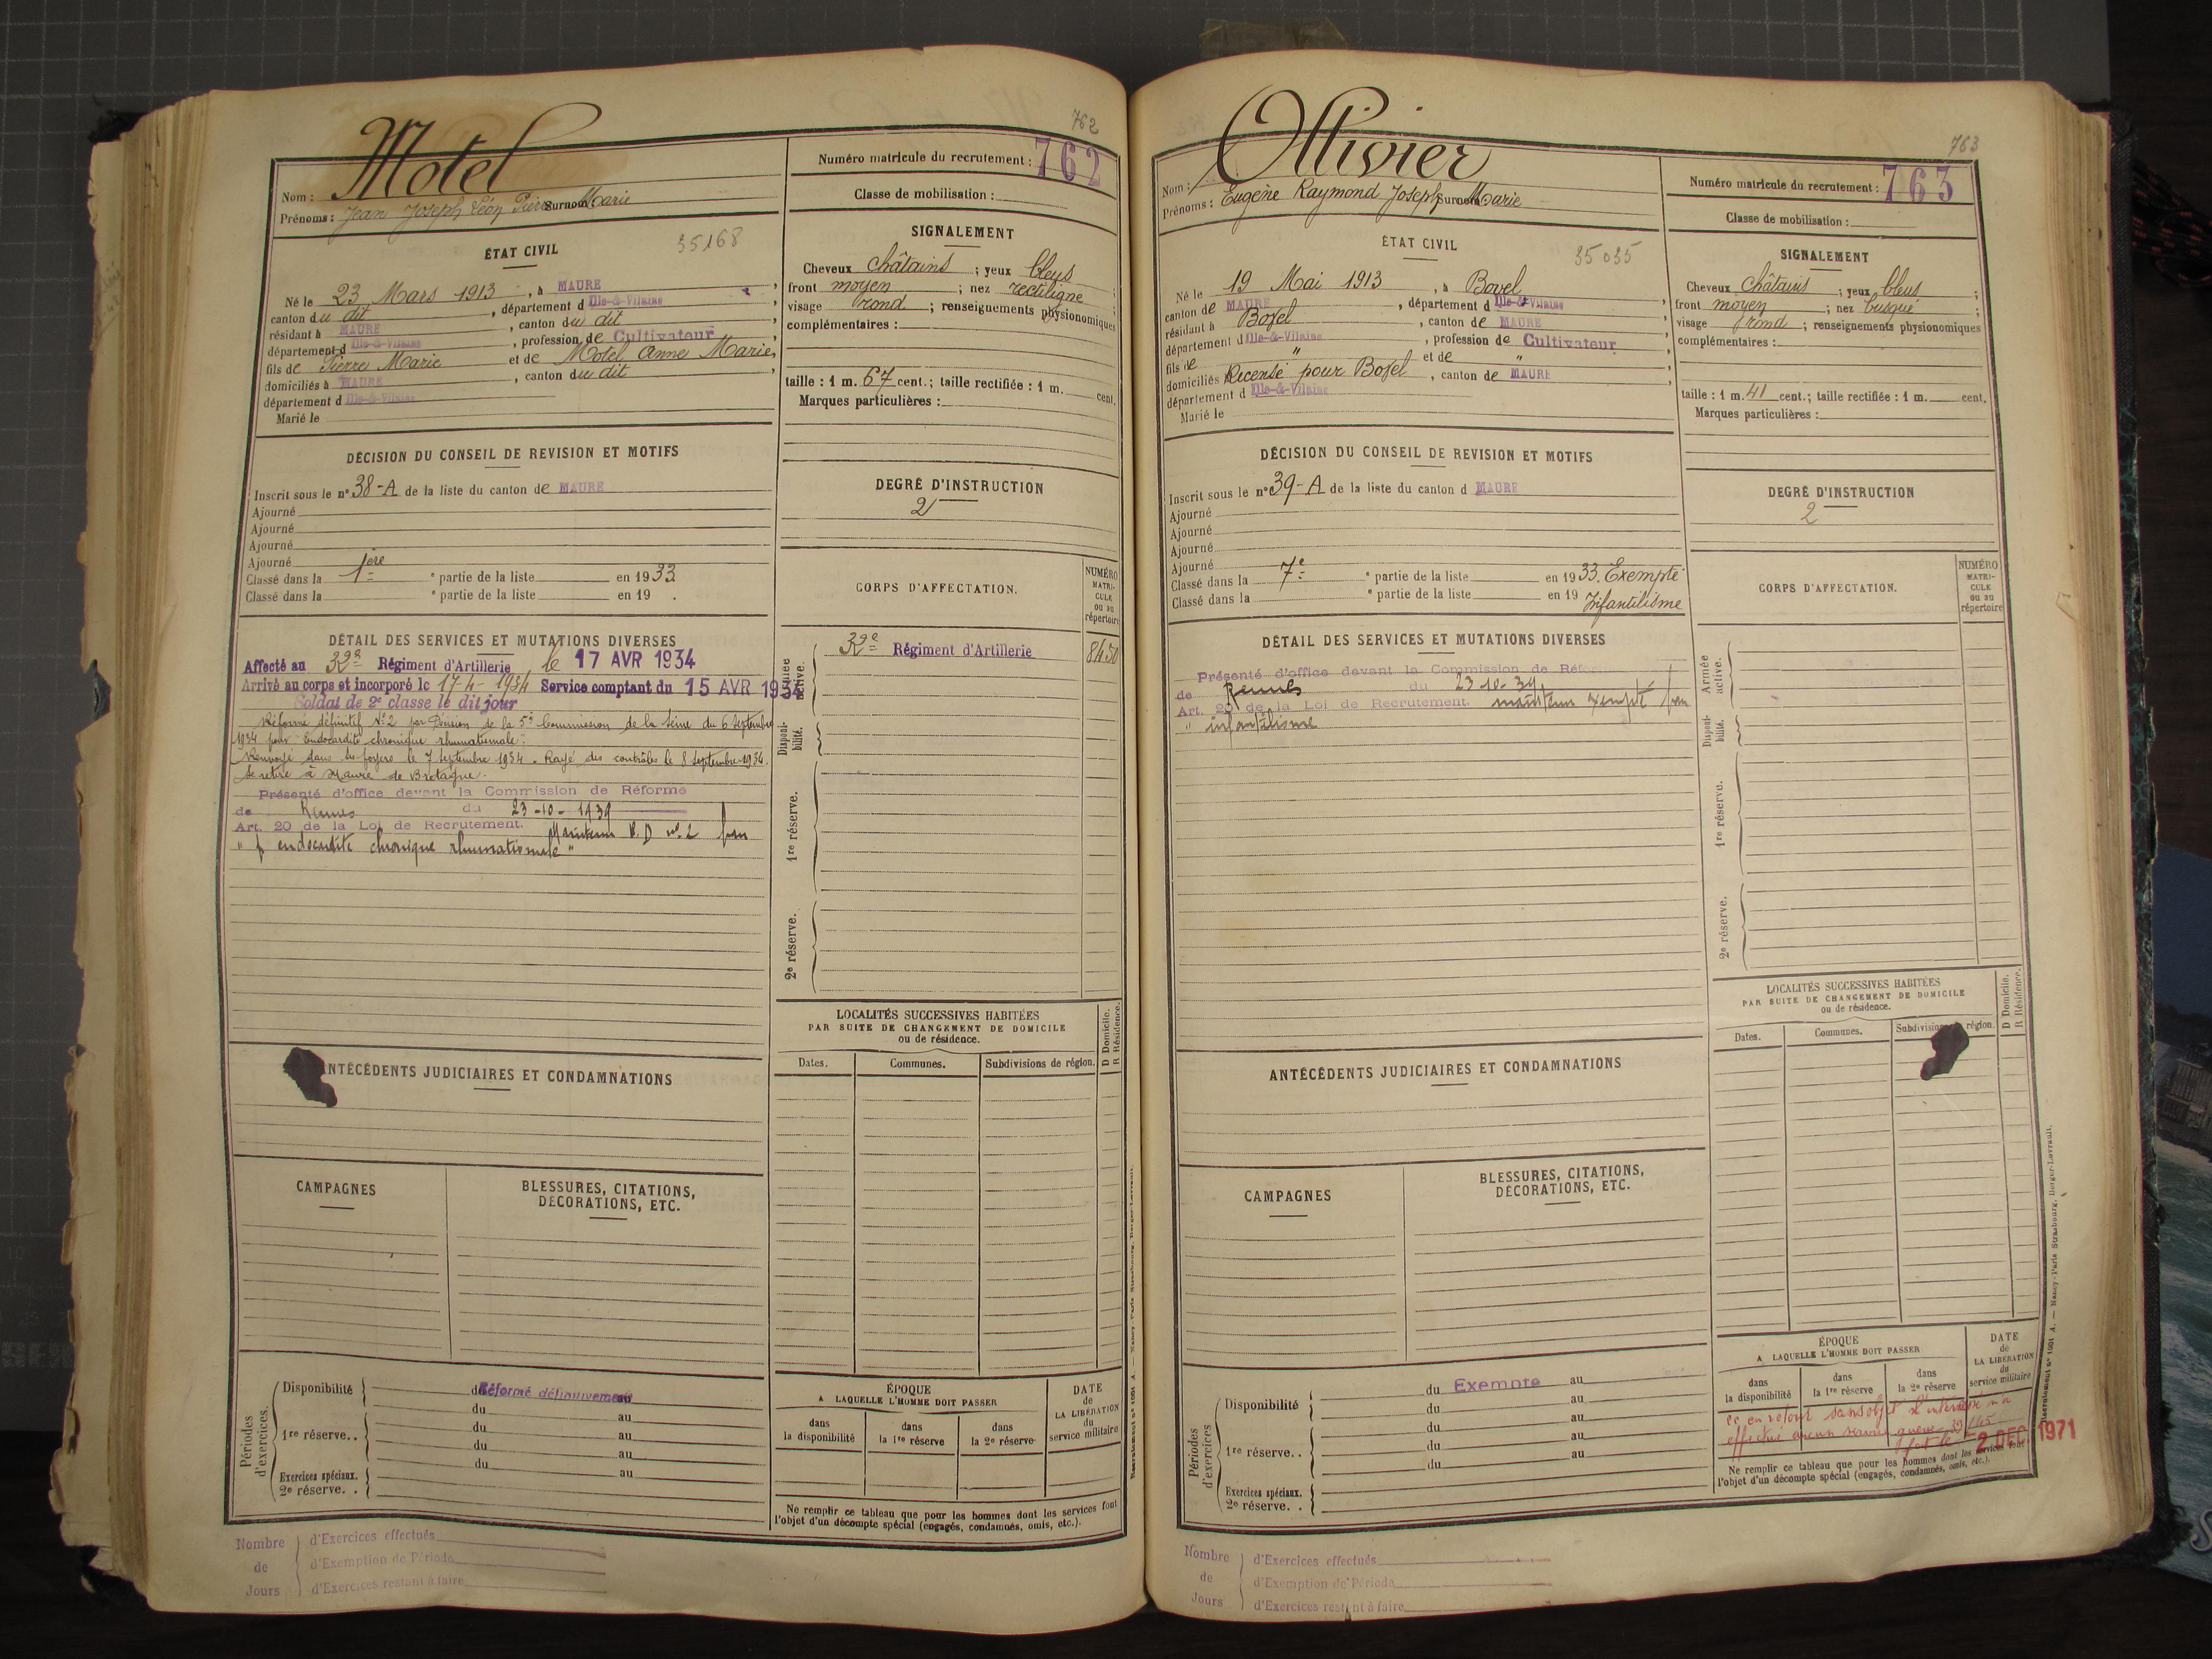 762
Motel
Nom :
Prénoms : Jean Joseph Léon Pierre Surnom : Marie
Numéro matricule du recrutement : 762
Classe de mobilisation :
ÉTAT CIVIL
35168
Né le 23 Mars 1913, à MAURE,
canton du dit, département d Ille-&-Vilaine,
résidant à MAURE, canton du dit,
département d Ille-&-Vilaine, profession de Cultivateur,
fils de Pierre Marie et de Motel Anne Marie,
domiciliés à MAURE, canton du dit,
département d Ille-&-Vilaine
Marié le
SIGNALEMENT
Cheveux châtains ; yeux bleus ;
front moyen ; nez rectiligne ;
visage rond ; renseignements physionomiques
complémentaires :
taille : 1 m. 67 cent.; taille rectifiée : 1 m. cent.
Marques particulières :
DÉCISION DU CONSEIL DE REVISION ET MOTIFS
Inscrit sous le n° 38-A de la liste du canton de MAURE
Ajourné
Ajourné
Ajourné
Ajourné
Classé dans la 1ère e partie de la liste en 1933
Classé dans la e partie de la liste en 19 .
DEGRÉ D'INSTRUCTION
2
CORPS D'AFFECTATION.
NUMÉRO
MATRI-
CULE
ou au
répertoire
DÉTAIL DES SERVICES ET MUTATIONS DIVERSES
Affecté au 32e Régiment d'Artillerie le 17 AVR 1934
Arrivé au corps et incorporé le 17-4-1934 Service comptant du 15 AVR 1934
Soldat de 2e classe le dit jour
Réformé définitif N°2 par Décision de la 5e Commission de la Seine du 6 Septembre
1934 pour "Endocardite chronique rhumatismale".
Renvoyé dans ses foyers le 7 Septembre 1934. Rayé des contrôles le 8 Septembre 1934.
Se retire à Maure de Bretagne.
Présenté d'office devant la Commission de Réforme
de Rennes du 23-10-1939
Art. 20 de la Loi de Recrutement. Maintenu R.D n° 2 pour
" endocardite chronique rhumatismale "
Armée
active.
32e Régiment d'Artillerie
8450
Disponi-
bilité.
1re réserve.
2e réserve.
LOCALITÉS SUCCESSIVES HABITÉES
PAR SUITE DE CHANGEMENT DE DOMICILE
ou de résidence.
D Domicile.
R Résidence.
Dates.
Communes.
Subdivisions de région.
ANTÉCÉDENTS JUDICIAIRES ET CONDAMNATIONS
CAMPAGNES
BLESSURES, CITATIONS,
DÉCORATIONS, ETC.
Périodes
d'exercices.
Disponibilité
du Réformé définitivement au
du au
1re réserve..
du au
du au
du au
Exercices spéciaux.
2e réserve. .
ÉPOQUE
A LAQUELLE L'HOMME DOIT PASSER
dans
la disponibilité
dans
la 1re réserve
dans
la 2e réserve
DATE
de
LA LIBÉRATION
du
service militaire
Ne remplir ce tableau que pour les hommes dont les services font
l'objet d'un décompte spécial (engagés, condamnés, omis, etc.).
Nombre
de
Jours
d'Exercices effectués
d'Exemption de Période
d'Exercices restant à faire
763
Ollivier
Nom :
Prénoms : Eugène Raymond Joseph Surnom : Marie
Numéro matricule du recrutement : 763
Classe de mobilisation :
ÉTAT CIVIL
35035
Né le 19 Mai 1913, à Bovel,
canton de MAURE, département d Ille-&-Vilaine,
résidant à Bovel, canton de MAURE,
département d Ille-&-Vilaine, profession de Cultivateur,
fils de " et de ",
domiciliés Recensé pour Bovel, canton de MAURE,
département d Ille-&-Vilaine
Marié le
SIGNALEMENT
Cheveux châtains ; yeux bleus ;
front moyen ; nez busqué ;
visage rond ; renseignements physionomiques
complémentaires :
taille : 1 m. 41 cent.; taille rectifiée : 1 m. cent.
Marques particulières :
DÉCISION DU CONSEIL DE REVISION ET MOTIFS
Inscrit sous le n° 39-A de la liste du canton d MAURE
Ajourné
Ajourné
Ajourné
Ajourné
Classé dans la 7e e partie de la liste en 1933. Exempté
Classé dans la e partie de la liste en 19 Infantilisme
DEGRÉ D'INSTRUCTION
2
CORPS D'AFFECTATION.
NUMÉRO
MATRI-
CULE
ou au
répertoire
DÉTAIL DES SERVICES ET MUTATIONS DIVERSES
Présenté d'office devant la Commission de Réforme
de Rennes du 23-10-39
Art. 20 de la Loi de Recrutement. maintenu exempté pour
" infantilisme
Armée
active.
Disponi-
bilité.
1re réserve.
2e réserve.
LOCALITÉS SUCCESSIVES HABITÉES
PAR SUITE DE CHANGEMENT DE DOMICILE
ou de résidence.
D Domicile.
R Résidence.
Dates.
Communes.
Subdivisions région.
ANTÉCÉDENTS JUDICIAIRES ET CONDAMNATIONS
CAMPAGNES
BLESSURES, CITATIONS,
DÉCORATIONS, ETC.
Périodes
d'exercices
Disponibilité
du Exempté au
du au
du au
1re réserve..
du au
du au
Exercices spéciaux.
2e réserve. .
ÉPOQUE
A LAQUELLE L'HOMME DOIT PASSER
dans
la disponibilité
dans
la 1re réserve
dans
la 2e réserve
DATE
de
LA LIBÉRATION
du
service militaire
en retour sans objet l'intéressé n'a
effectué aucun service guerre
fait le 2 DEC 1971
Ne remplir ce tableau que pour les hommes dont les services font
l'objet d'un décompte spécial (engagés, condamnés, omis, etc.).
Recrutement n° 1001 A. — Nancy-Paris-Strasbourg, Berger-Levrault.
Nombre
de
Jours
d'Exercices effectués
d'Exemption de Période
d'Exercices restant à faire